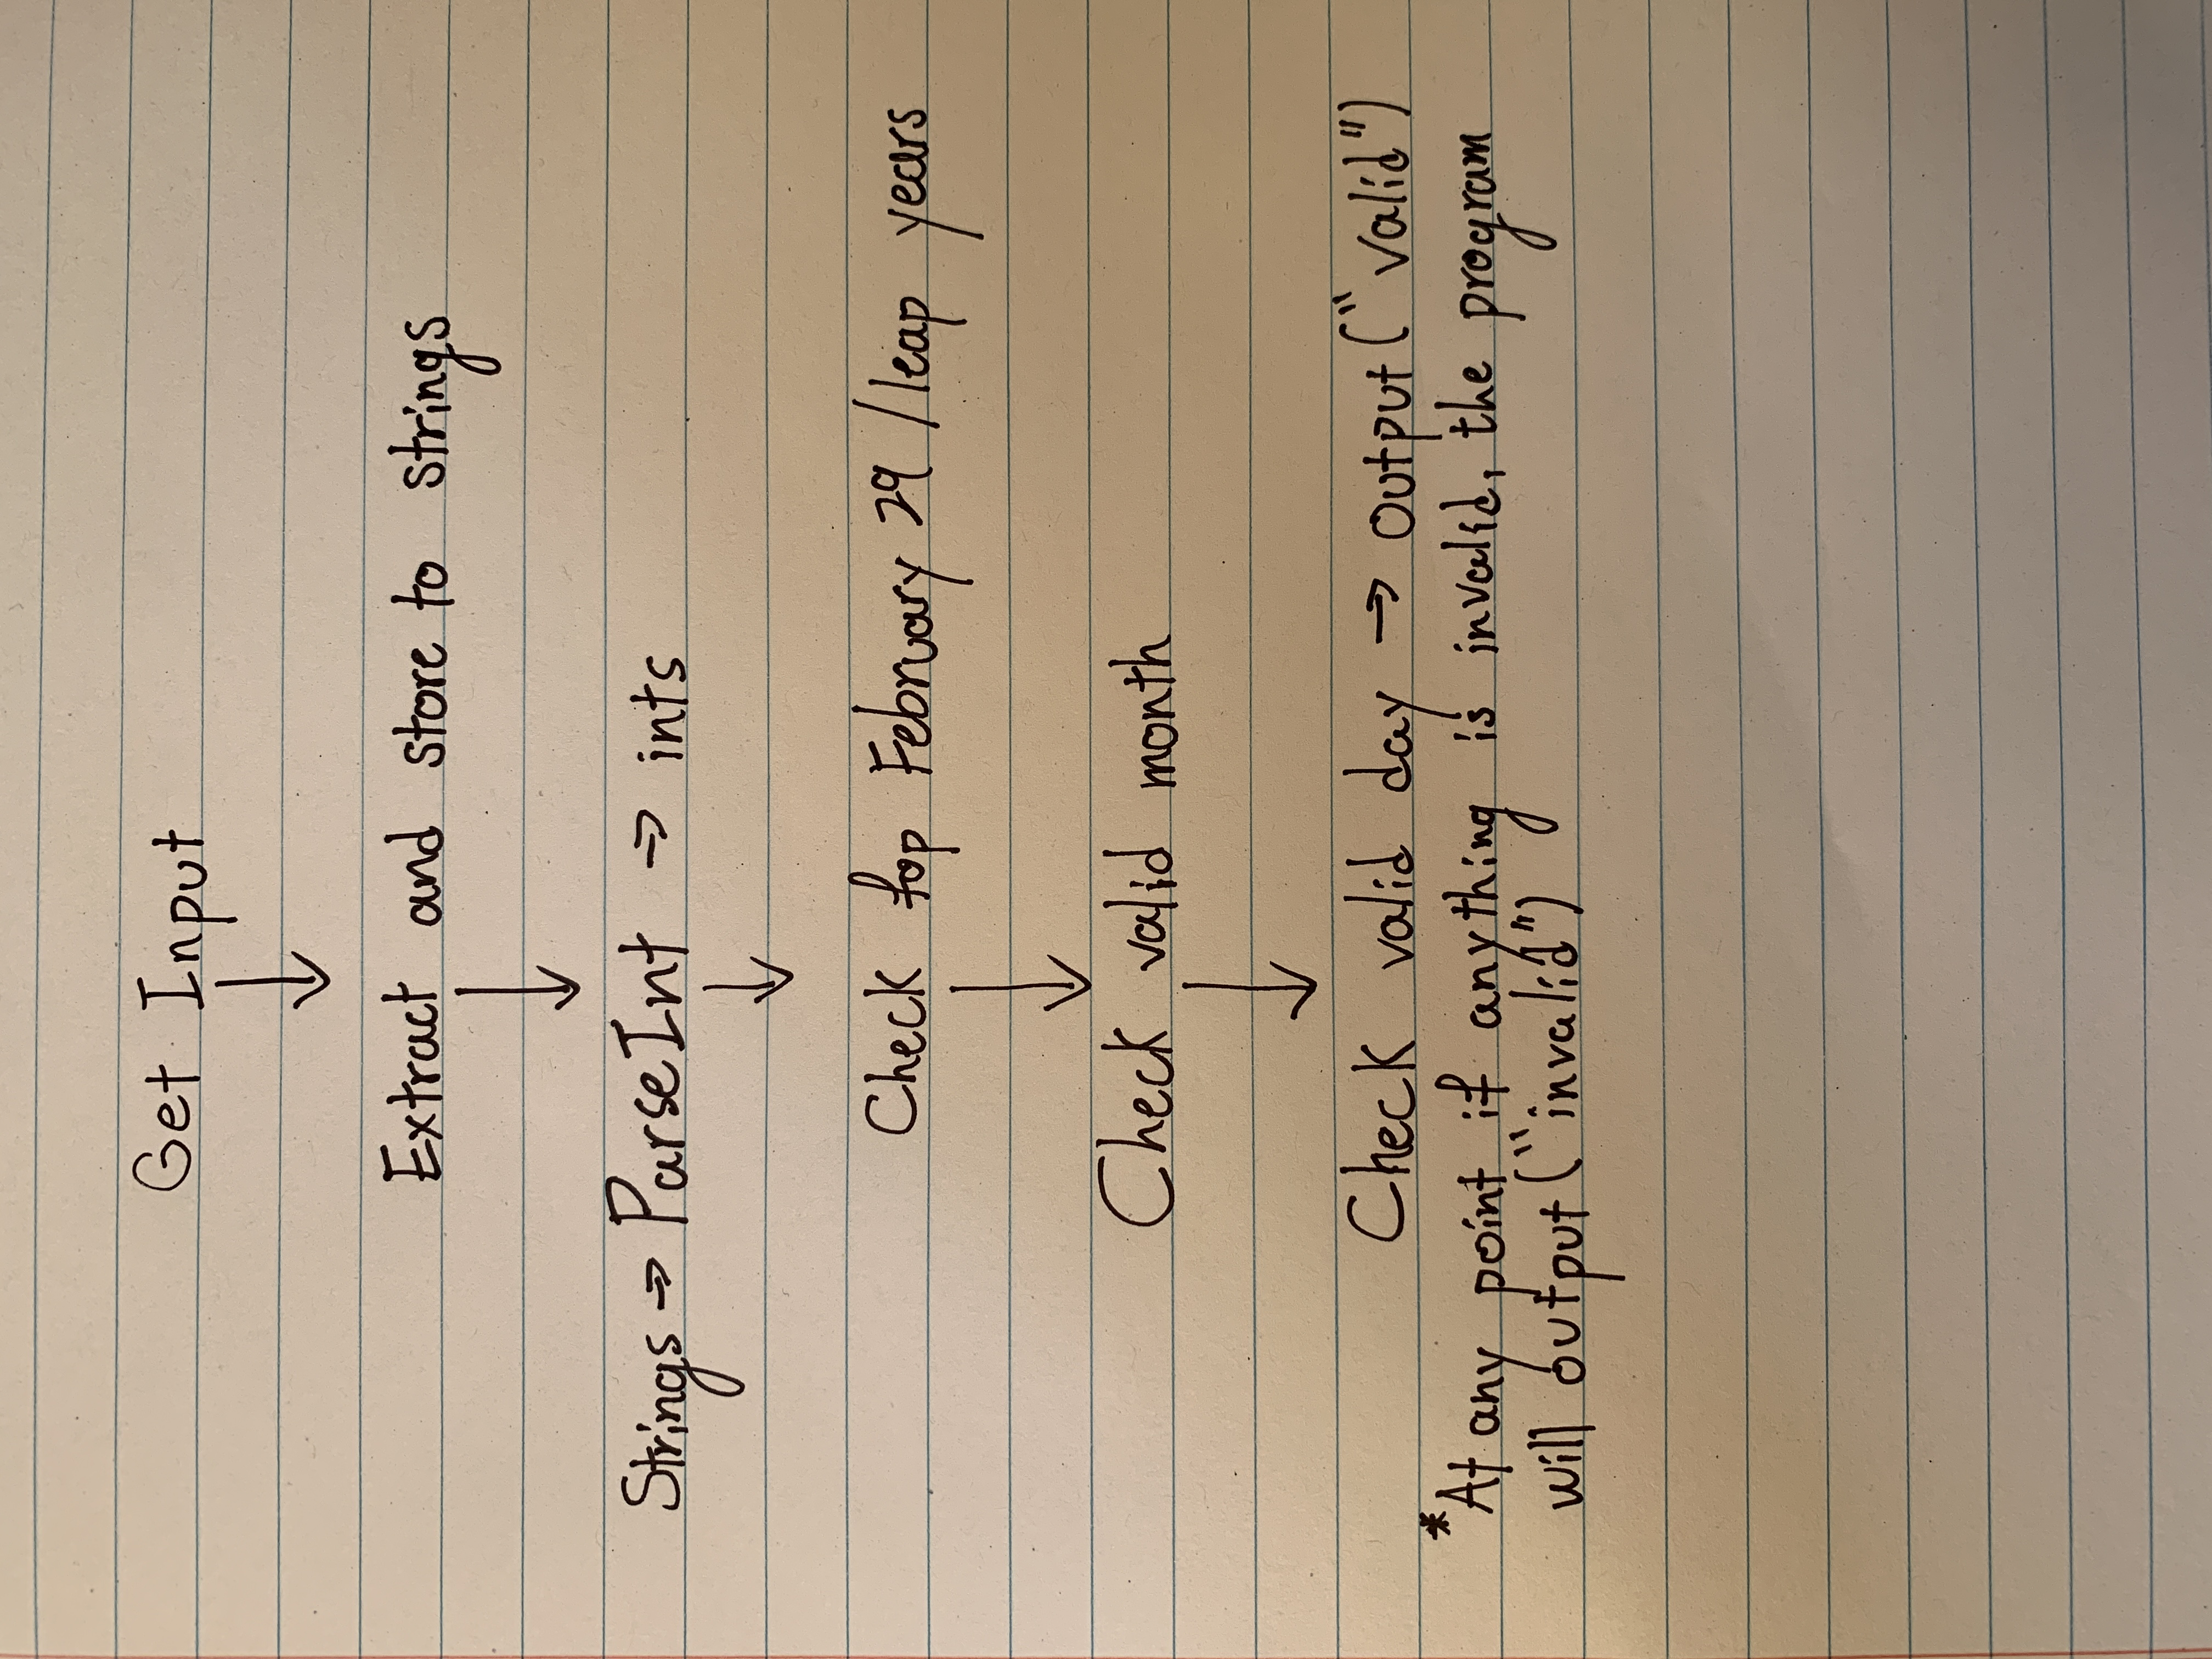 Get Input
↓
Extract and store to strings
↓
Strings → ParseInt → ints
↓
Check fop February 29 / leap years
↓
Check valid month
↓
Check valid day → output("valid")
*At any point if anything is invalid, the program
will output("invalid")